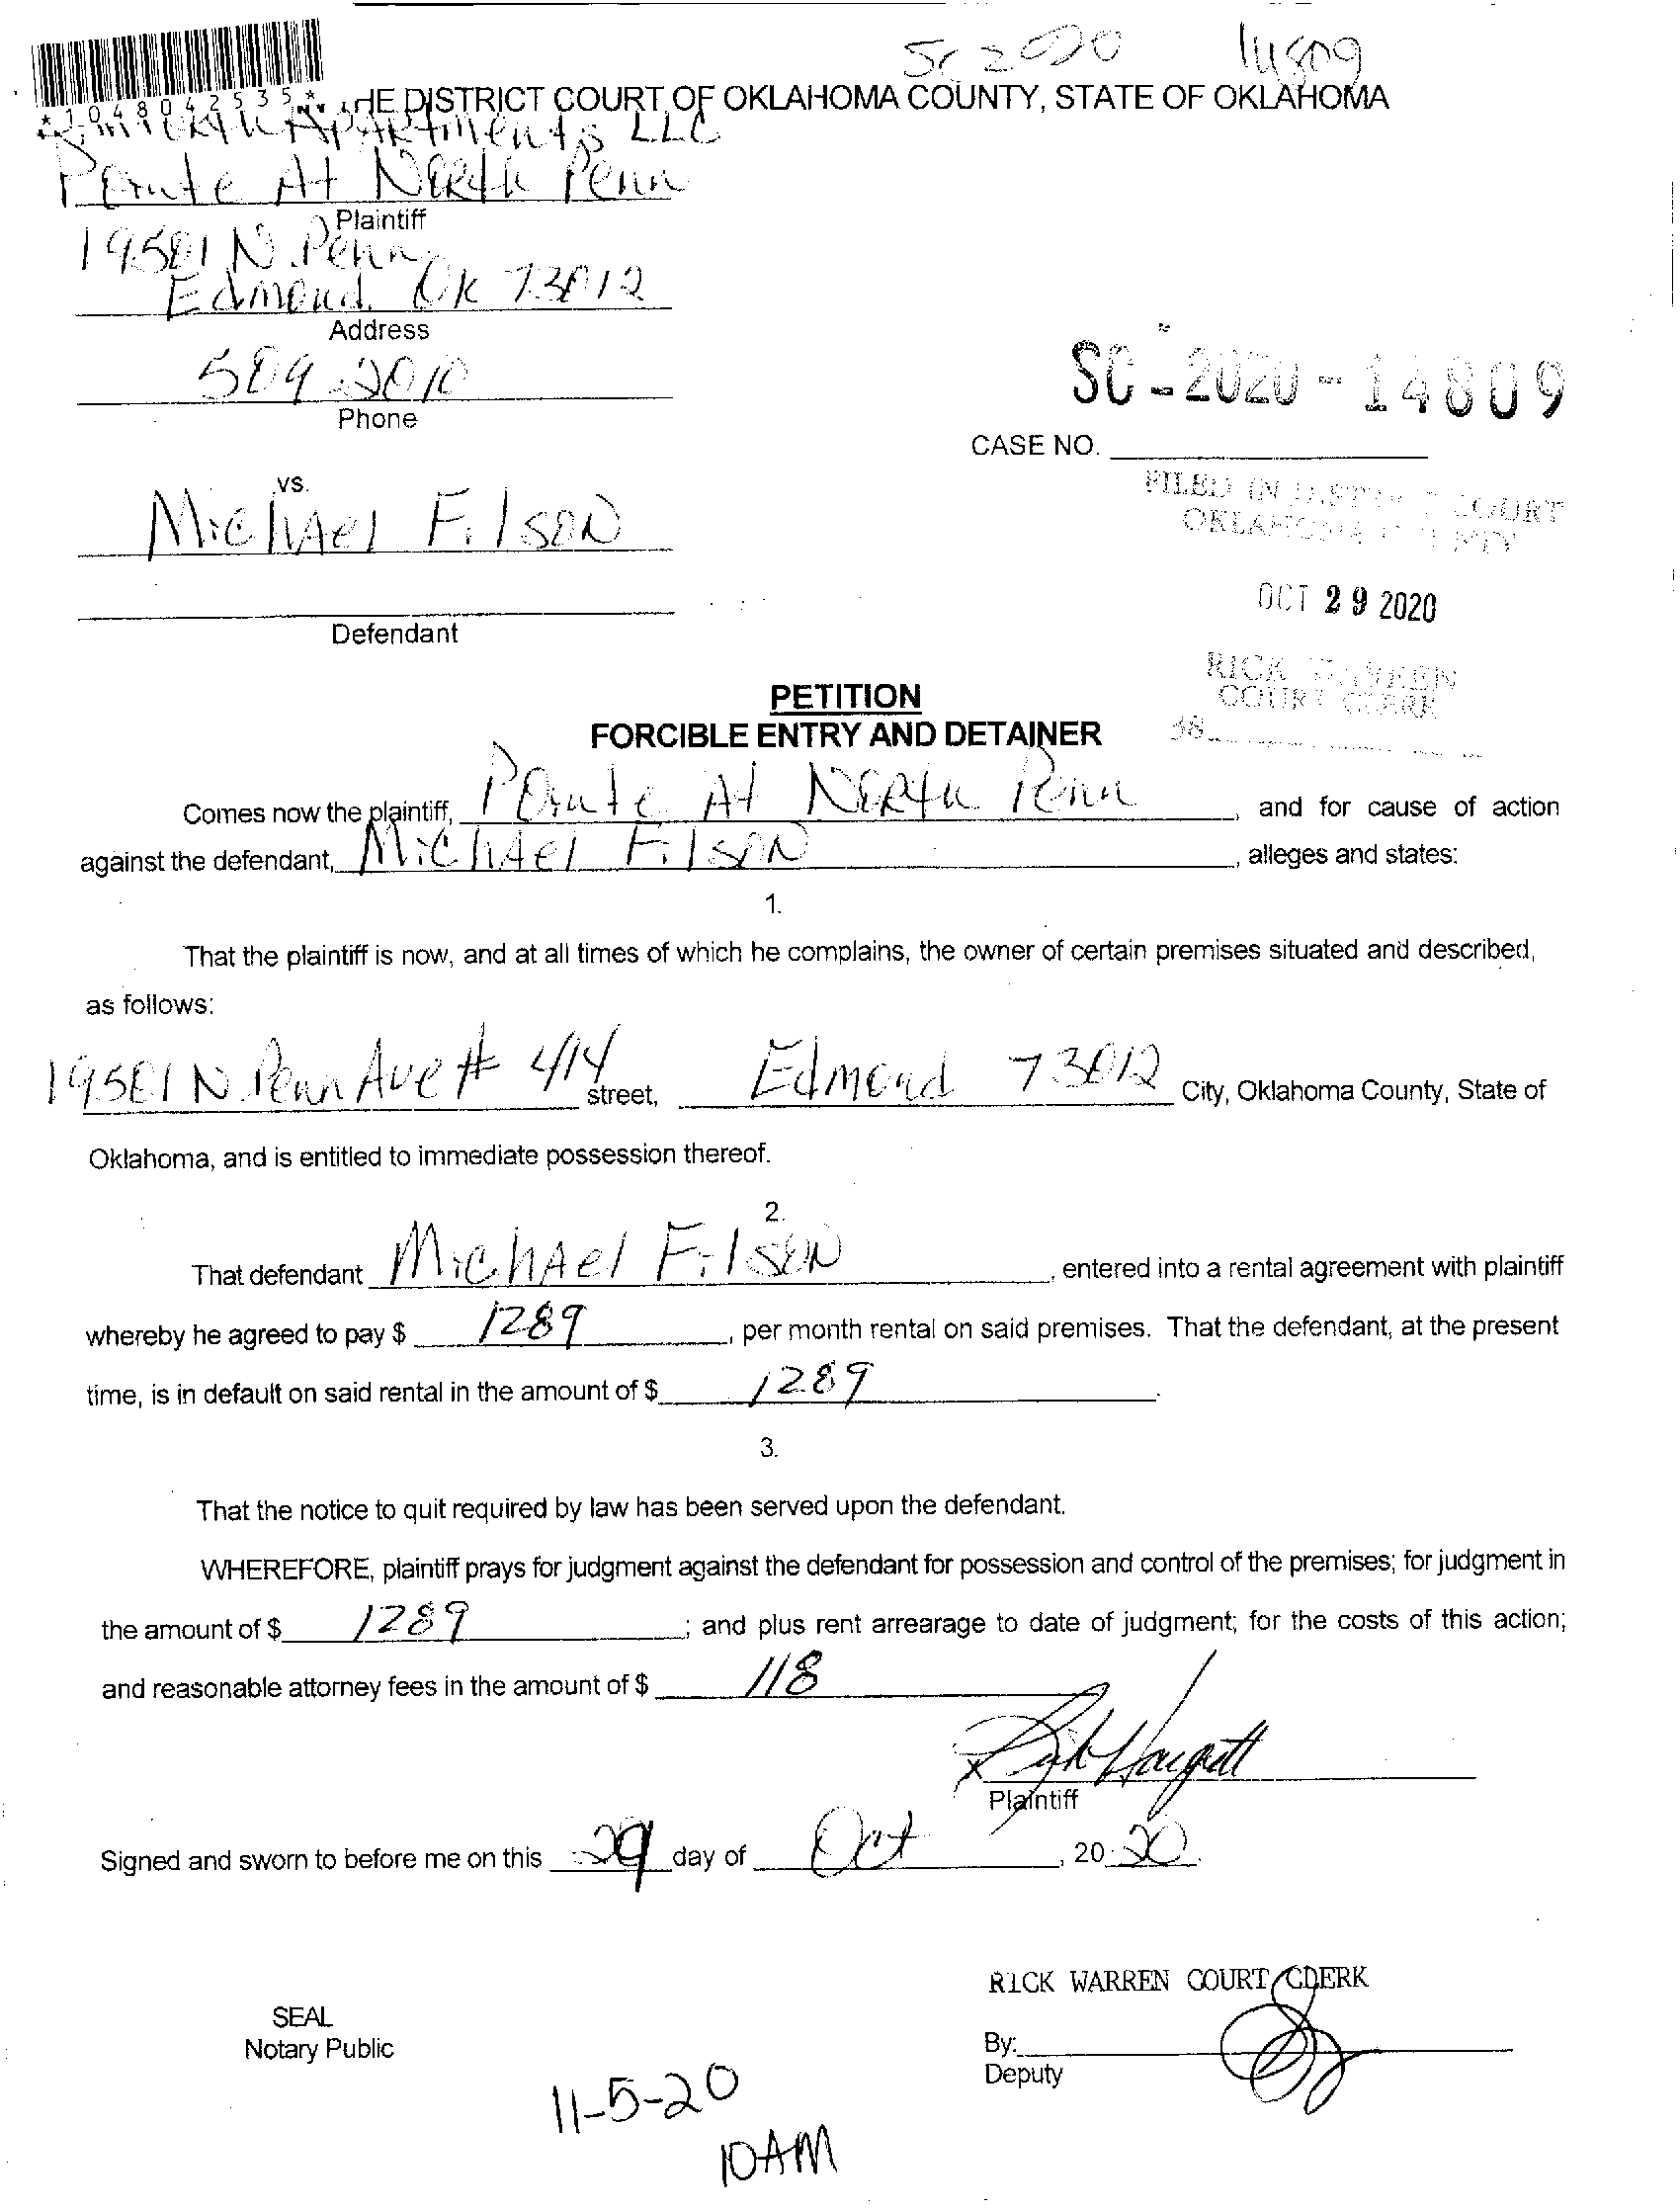 SC 2020 14809
*1048042535*
THE DISTRICT COURT OF OKLAHOMA COUNTY, STATE OF OKLAHOMA
Apartments LLC
Pointe At North Penn
Plaintiff
19501 N. Penn
Edmond, OK 73012
Address
509-2010
Phone
SC-2020-14809
CASE NO.
vs.
FILED IN DISTRICT COURT
OKLAHOMA COUNTY
Michael Filson
OCT 29 2020
Defendant
RICK WARREN
COURT CLERK
38
PETITION
FORCIBLE ENTRY AND DETAINER
Comes now the plaintiff, Pointe At North Penn, and for cause of action
against the defendant, Michael Filson, alleges and states:
1.
That the plaintiff is now, and at all times of which he complains, the owner of certain premises situated and described,
as follows:
19501 N. Penn Ave # 414 street, Edmond 73012 City, Oklahoma County, State of
Oklahoma, and is entitled to immediate possession thereof.
2.
That defendant Michael Filson, entered into a rental agreement with plaintiff
whereby he agreed to pay $ 1289, per month rental on said premises. That the defendant, at the present
time, is in default on said rental in the amount of $ 1289.
3.
That the notice to quit required by law has been served upon the defendant.
WHEREFORE, plaintiff prays for judgment against the defendant for possession and control of the premises; for judgment in
the amount of $ 1289; and plus rent arrearage to date of judgment; for the costs of this action;
and reasonable attorney fees in the amount of $ 118
x
Plaintiff
Signed and sworn to before me on this 29 day of Oct, 20 20.
RICK WARREN COURT CLERK
SEAL
Notary Public
By:
Deputy
11-5-20
10AM